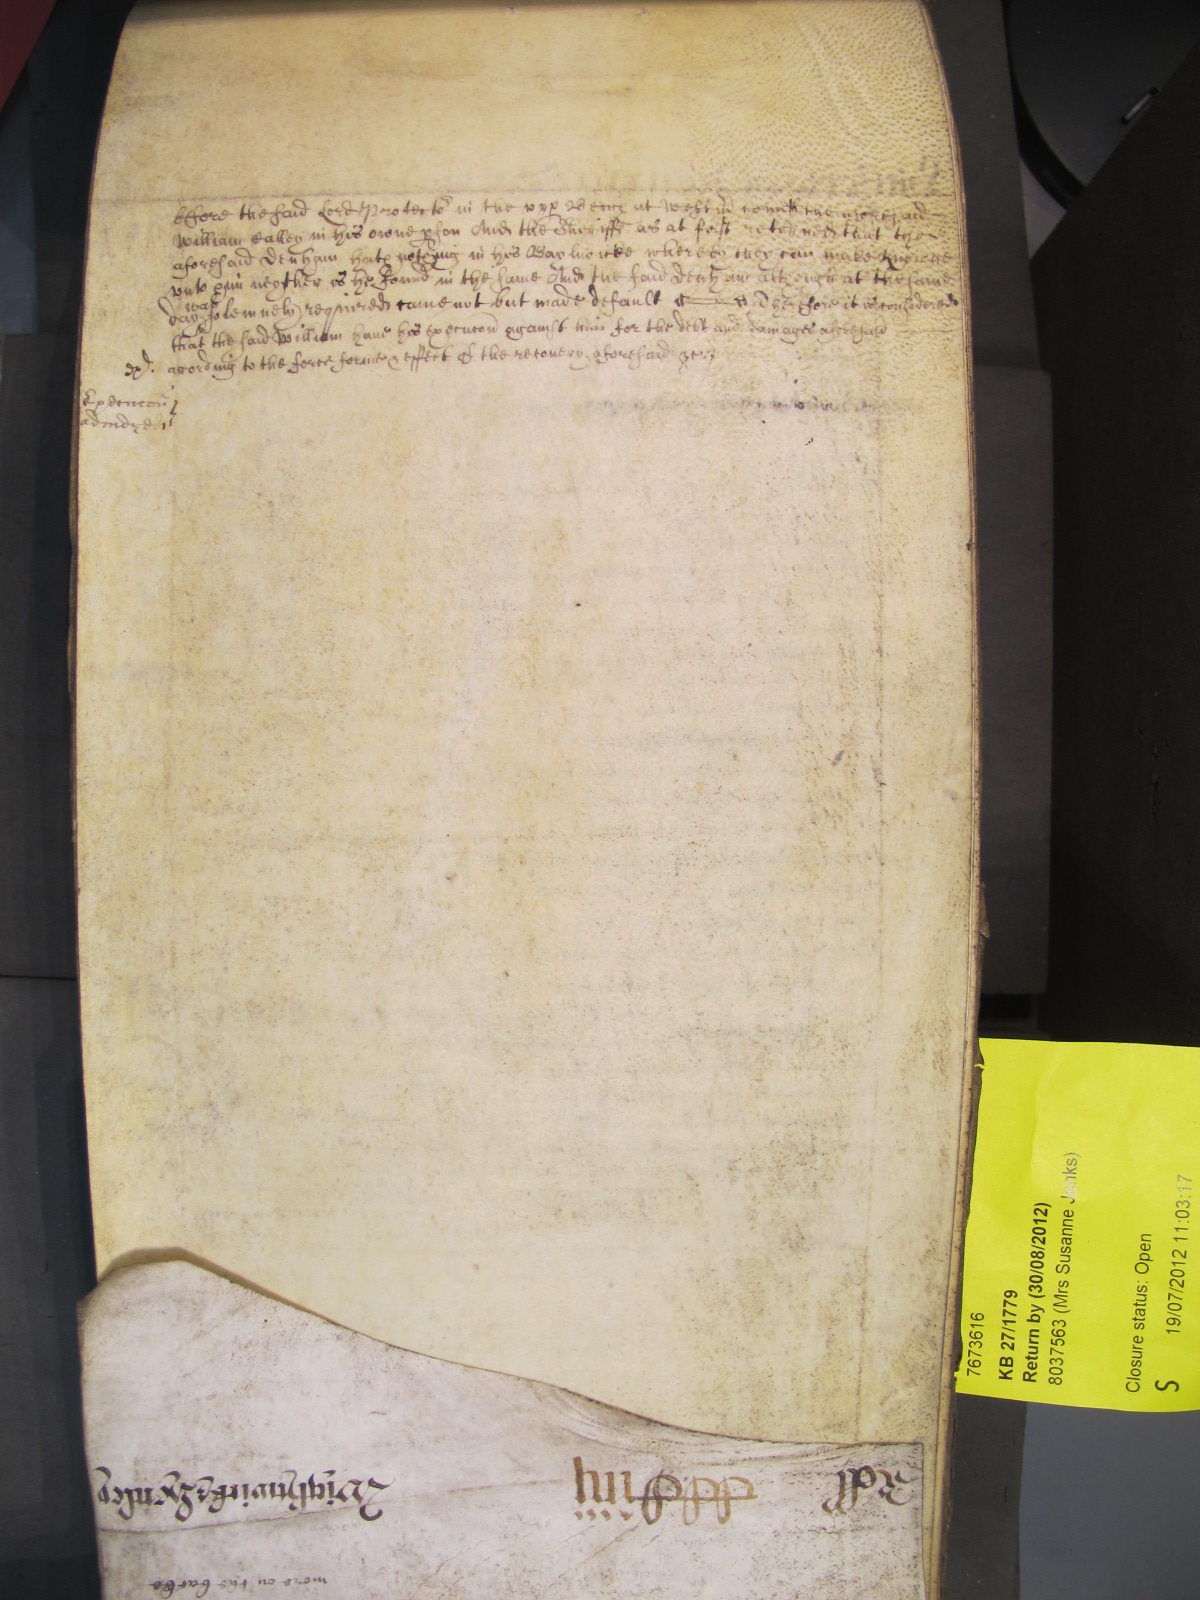 before the said Lord Protector in the upp Bench at Westm cometh the aforesaid
William Calley in his owne pson And the Sheriffe as at first returned that the
aforesaid Denham hath nothing in his Bayliwicke whereby they can make knowne
unto him neyther is he found in the same And the said Denham although at the same
day was solemnely required came not but made default Therefore it is considered
that the said William have his execucon against him for the debt and damages aforesaid
acording to the force forme & effect of the recovery aforesaid
Execucon
7673616
KB 27/1779
Return by (30/08/2012)
8037563 (Mrs Susanne Jenks)
Closure status: Open
S 19/07/2012 11:03:17
Roll
Wightwicke & Henley
more on the backe